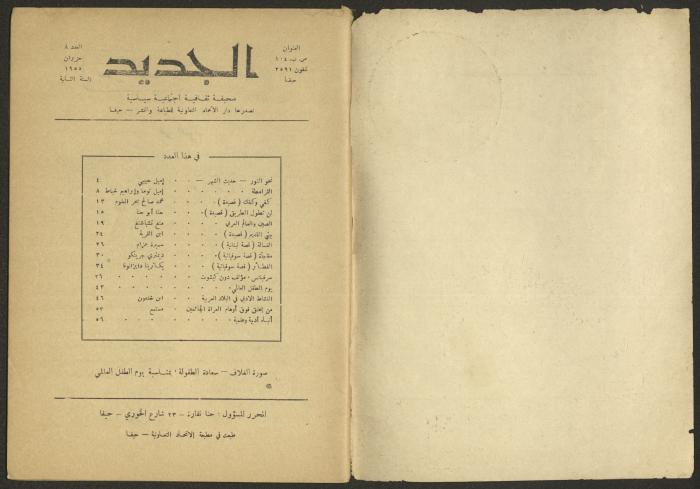 العنوان
ص. ب. ١٠٤
تلفون ٢٥٩١
حيفا
الجديد
العدد ٨
حزيران
١٩٥٥
السنة الثانية
صحيفة ثقافية اجتماعية سياسية
تصدرها دار الاتحاد التعاونية للطباعة والنشر — حيفا
في هذا العدد
نحو النور — حديث الشهر — . . . إميل حبيبي ٤
القرامطة . . . إميل توما وإبراهيم خياط ٨
كفي وكفك ( قصيدة ) . . محمد صالح بحر العلوم ١٣
لن تطول الطريق ( قصيدة ) . . . حنا أبو حنا ١٨
الصين والعالم العربي . . . ١٩
بيتي القديم ( قصيدة ) . . . ابن القرية ٢٤
الغسالة ( قصة لبنانية ) . . . سميرة عزام ٢٦
مفاجأة ( قصة سوفياتية ) . . . ديمتري ٣٠
( قصة سوفياتية ) . . . ٣٤
سرفنتس ، مؤلف دون كيشوت . . . ٣٦
يوم الطفل العالمي . . . ٤٣
النشاط الادبي في البلاد العربية . . ابن خلدون ٤٦
من يحلق فوق أوهام المرأة . . مستمع ٥٣
أنباء أدبية وعلمية . . . ٥٦
صورة الغلاف — سعادة الطفولة ؛ بمناسبة يوم الطفل العالمي
المحرر المسؤول : حنا نقارة — ٢٣ شارع الخوري — حيفا
طبعت في مطبعة الاتحاد التعاونية — حيفا